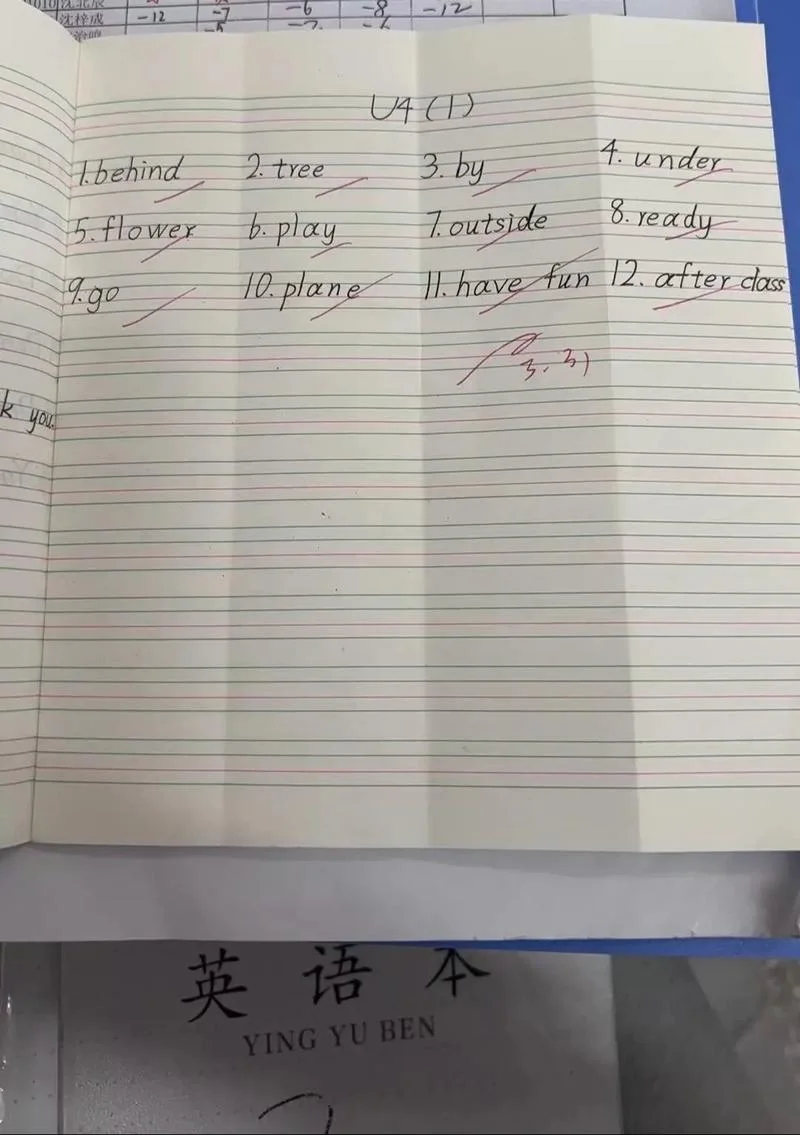 沈梓成 -12 -7 -6 -8 -12
U4 (1)
1. behind 2. tree 3. by 4. under
5. flower 6. play 7. outside 8. ready
9. go 10. plane 11. have fun 12. after class
3.31
k you.
英语本
YING YU BEN